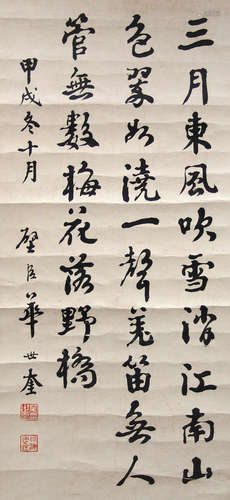 三月東風吹雪消江南山
色翠如澆一聲羗笛無人
管無數梅花落野橋
甲戌冬十月 璧臣華世奎